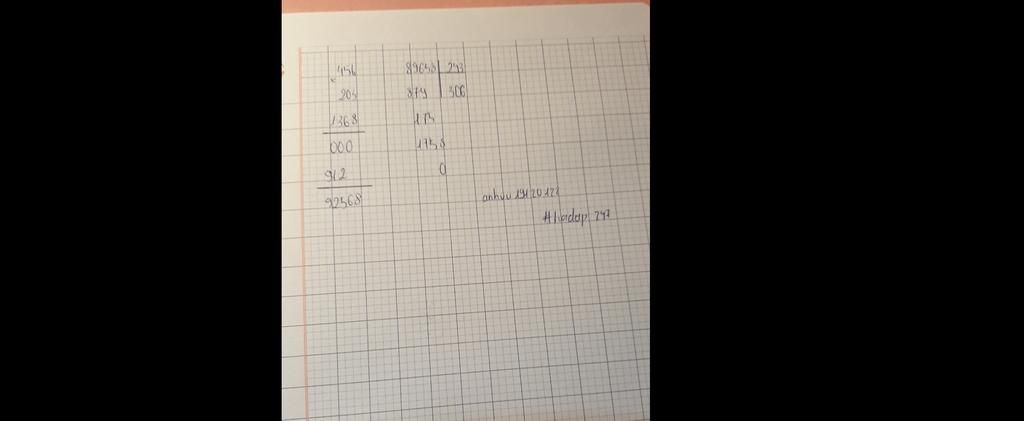 × 456
203
1368
000
912
92568
89658 | 293
879 | 306
175
1758
0
anhvu1912012
#hoidap 247